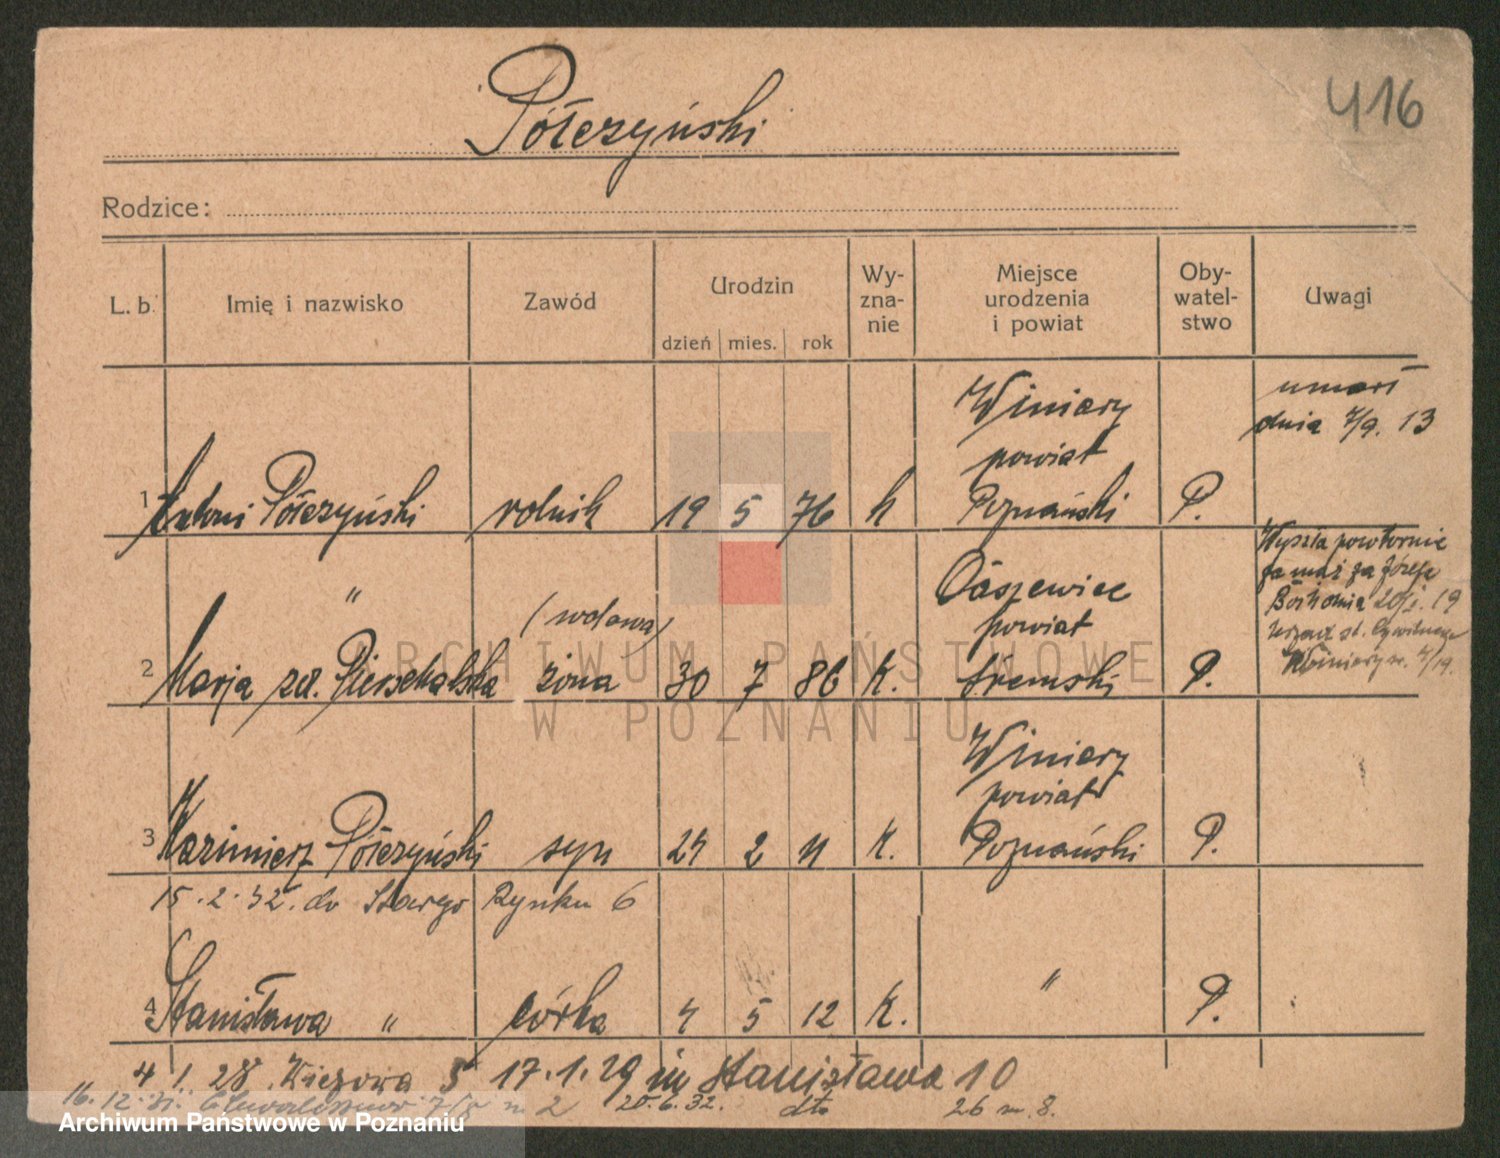 416
Półczyński
Rodzice:
L. b. Imię i nazwisko Zawód Urodzin dzień mies. rok Wy-zna-nie Miejsce urodzenia i powiat Oby-watel-stwo Uwagi
umarł
dnia 7/9. 13
Winiary
powiat
1 Antoni Półczyński rolnik 19 5 76 k Poznański P.
Wyszła powtórnie
za mąż za Józefa
20/1. 19
" (wdowa) Daszewice
powiat
2 Marja zd. żona 30 7 86 K. śremski P.
Winiary n. 7/19.
Winiary
powiat
3 Kazimierz Półczyński syn 24 2 11 K. Poznański P.
15.2.32. do Starego Rynku 6
4 Stanisława " córka 4 5 12 K. " P.
4 1. 28. 5 17.1.29 Stanisława 10
16.12.31. m 2 20.6.32. dto 26 m. 8.
ARCHIWUM PAŃSTWOWE
W POZNANIU
Archiwum Państwowe w Poznaniu